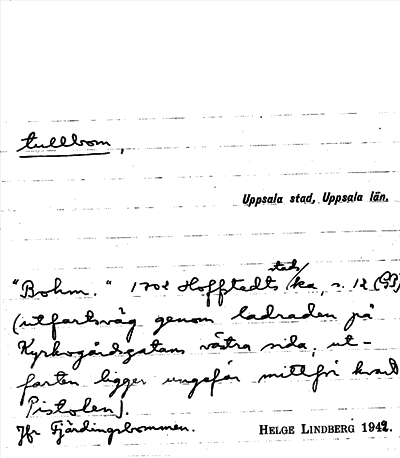 tullbom,
Uppsala stad, Uppsala län.
"Bohm." 1702 Hoffstedts stads/ka, n. 12 (GB)
(utfartsväg genom ladraden på
Kyrkogårdsgatans västra sida, ut-
farten ligger ungefär mittför kvart
Pistolen).
Jfr Fjärdingsbommen.
HELGE LINDBERG 1942.